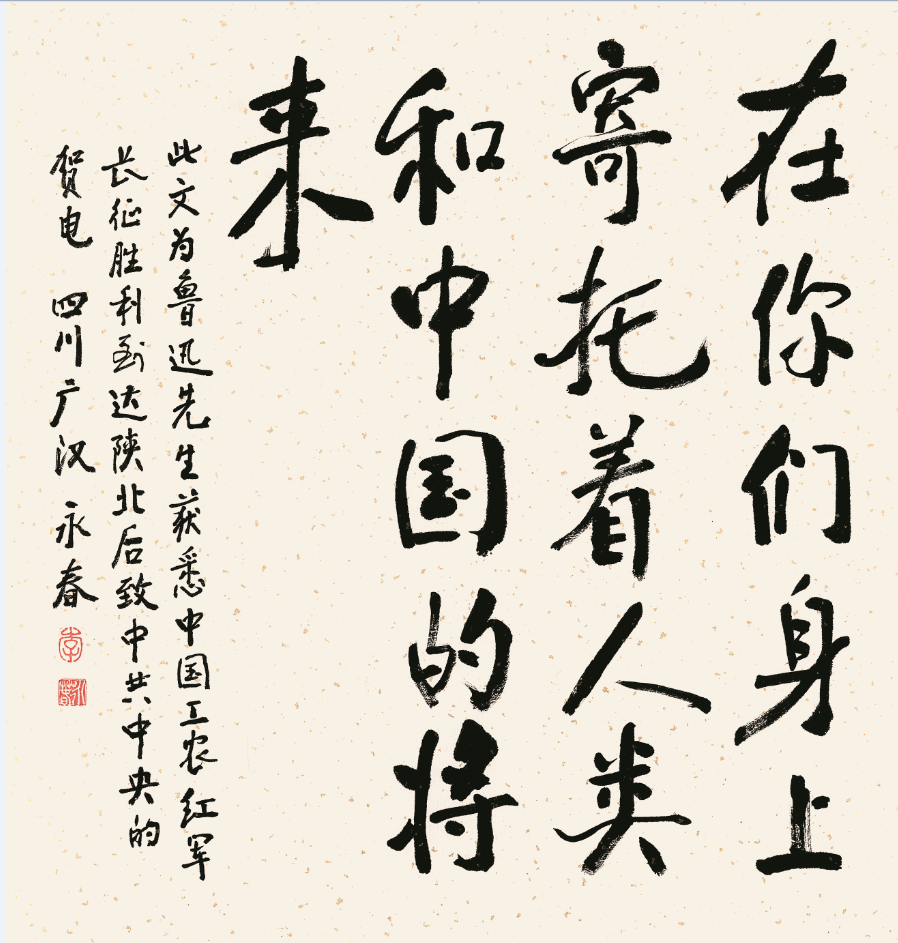 在你们身上
寄托着人类
和中国的将
来
此文为鲁迅先生获悉中国工农红军
长征胜利到达陕北后致中共中央的
贺电 四川广汉 永春